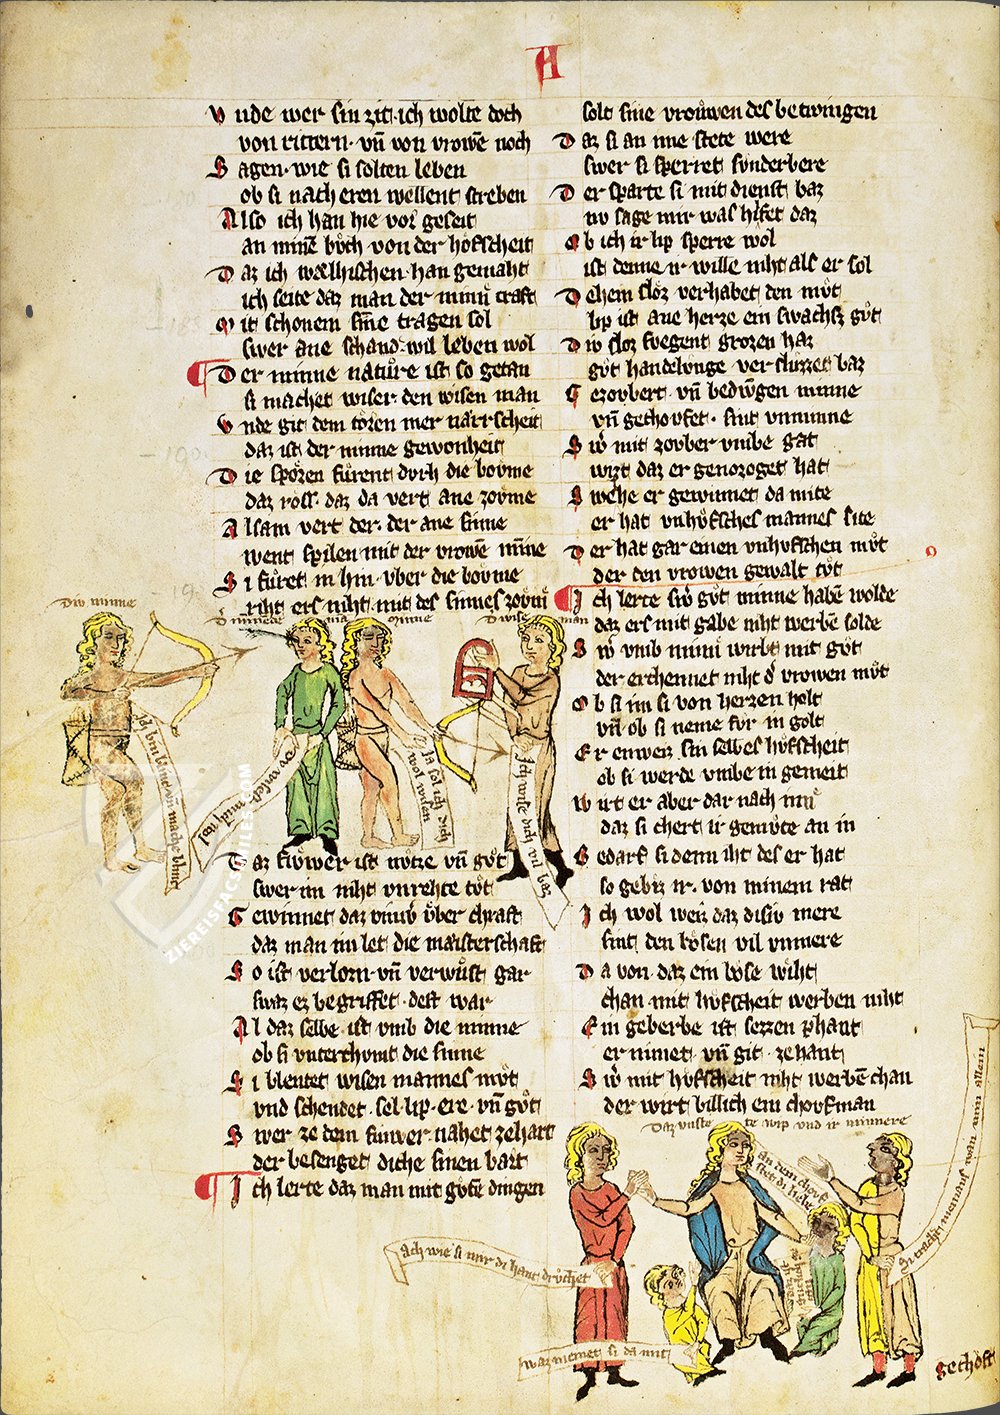 A
Vnde wer sin zit. ich wolte doch
von rittern. vn̄ von vrowē noch
Sagen. wie si solten leben
ob si nach eren wellent streben
Also ich han hie vor geseit
an minē bůch von der hôfscheit
Daz ich wælhischen han gemaht
ich seite daz man der minn craft
Mit schonem sinne tragen sol
swer ane schand wil leben wol
Der minne natůre ist so getan
si machet wiser den wisen man
Vnde git dem toren mer narrscheit
daz ist der minne gewonheit
Die sporen fůrent dvrh die bovme
daz ross. daz da vert ane zovme
Alsam vert der. der ane sinne
went spilen mit der vrowē minne
Si fůret in hin vber die bovme
riht ers niht mit des sinnes zovm
Div minne
D wise man
ich bin blint vn̄ mache blint
Ja sol ich dich wol wisen
Ich wise dich vil baz
Daz fiwer ist nvtze vn̄ gůt
swer im niht vnrehte tůt
Gewinnet daz vivr v̊ber chraft
daz man im let die maisterschaft
So ist verlorn vn̄ verwůst gar
swaz ez begriffet. dest war
Al daz selbe ist vmb die minne
ob si vnterchvmt die sinne
Si blentet wisen mannes mv̊t
vnd schendet. sel. lip. ere. vn̄ gůt
Swer ze dem fiuwer nahet ze hart
der besenget diche sinen bart
Ich lerte daz man mit gůtē dingen
solt sine vrouwen des betwingen
Daz si an ime stete were
swer si sperret svnderbere
Der sparte si mit dienst baz
nv sage mir was hilfet daz
Ob ich ir lip sperre wol
ist denne ir wille niht als er sol
Dehein sloz verhabet den mv̊t
lip ist ane herze ein swachz gůt
Div sloz fvegent grozen haz
gůt handelvnge versluzzet baz
Gezovbert vn̄ bedwngen minne
vn̄ gechovfet. sint vnminne
Swer mit zovber vmbe gat
wizt daz er genozoget hat
Swelhe er gewinnet da mite
er hat vnhůfsches mannes site
Der hat gar einen vnhvfschen mv̊t
der den vrowen gewalt tůt
Ich lerte swer gůt minne habē wolde
daz ers mit gabe niht werbē solde
Swer vmb minn wirbt mit gůt
der erchennet niht der vrowen mv̊t
Ob si im si von herzen holt
vn̄ ob si neme fvr in golt
Er enweiz sin selbes hôfscheit
ob si werde vmbe in gemeit
Wirt er aber dar nach inn
daz si chert ir gemv̊te an in
Bedarf si denn iht des er hat
so gebiz ir. von minem rat
Ich wol weiz daz disiv mere
sint den bôsen vil vnmere
Da von. daz ein bôse wiht
chan mit hvfscheit werben niht
Ein geberbe ist sezzen phant
er nimet. vn̄ git. zehant
Swer mit hvfscheit niht werbē chan
der wirt billich ein chovfman
Daz vnstete wip vnd ir minnere
an dem chovf stet di liebe
ach wie si mir di hant drůchet
waz nimet si da mit
gechôft